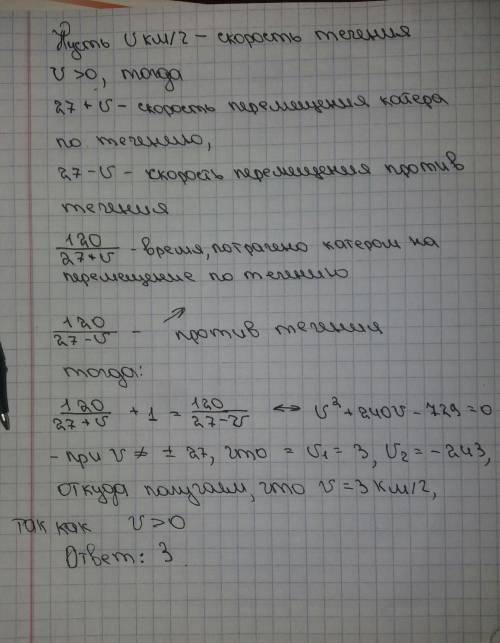 Пусть v км/г - скорость течения
v>0, тогда
27+v - скорость перемещения катера
по течению,
27-v - скорость перемещения против
течения
120/(27+v) - время, потрачено катером на
перемещение по течению
120/(27-v) - ↗ против течения
тогда:
120/(27+v) + 1 = 120/(27-v) ⇔ v² + 240v - 729 = 0
- при v ≠ ± 27, что = v₁ = 3, v₂ = -243,
откуда получаем, что v = 3 км/г,
так как v>0
Ответ: 3